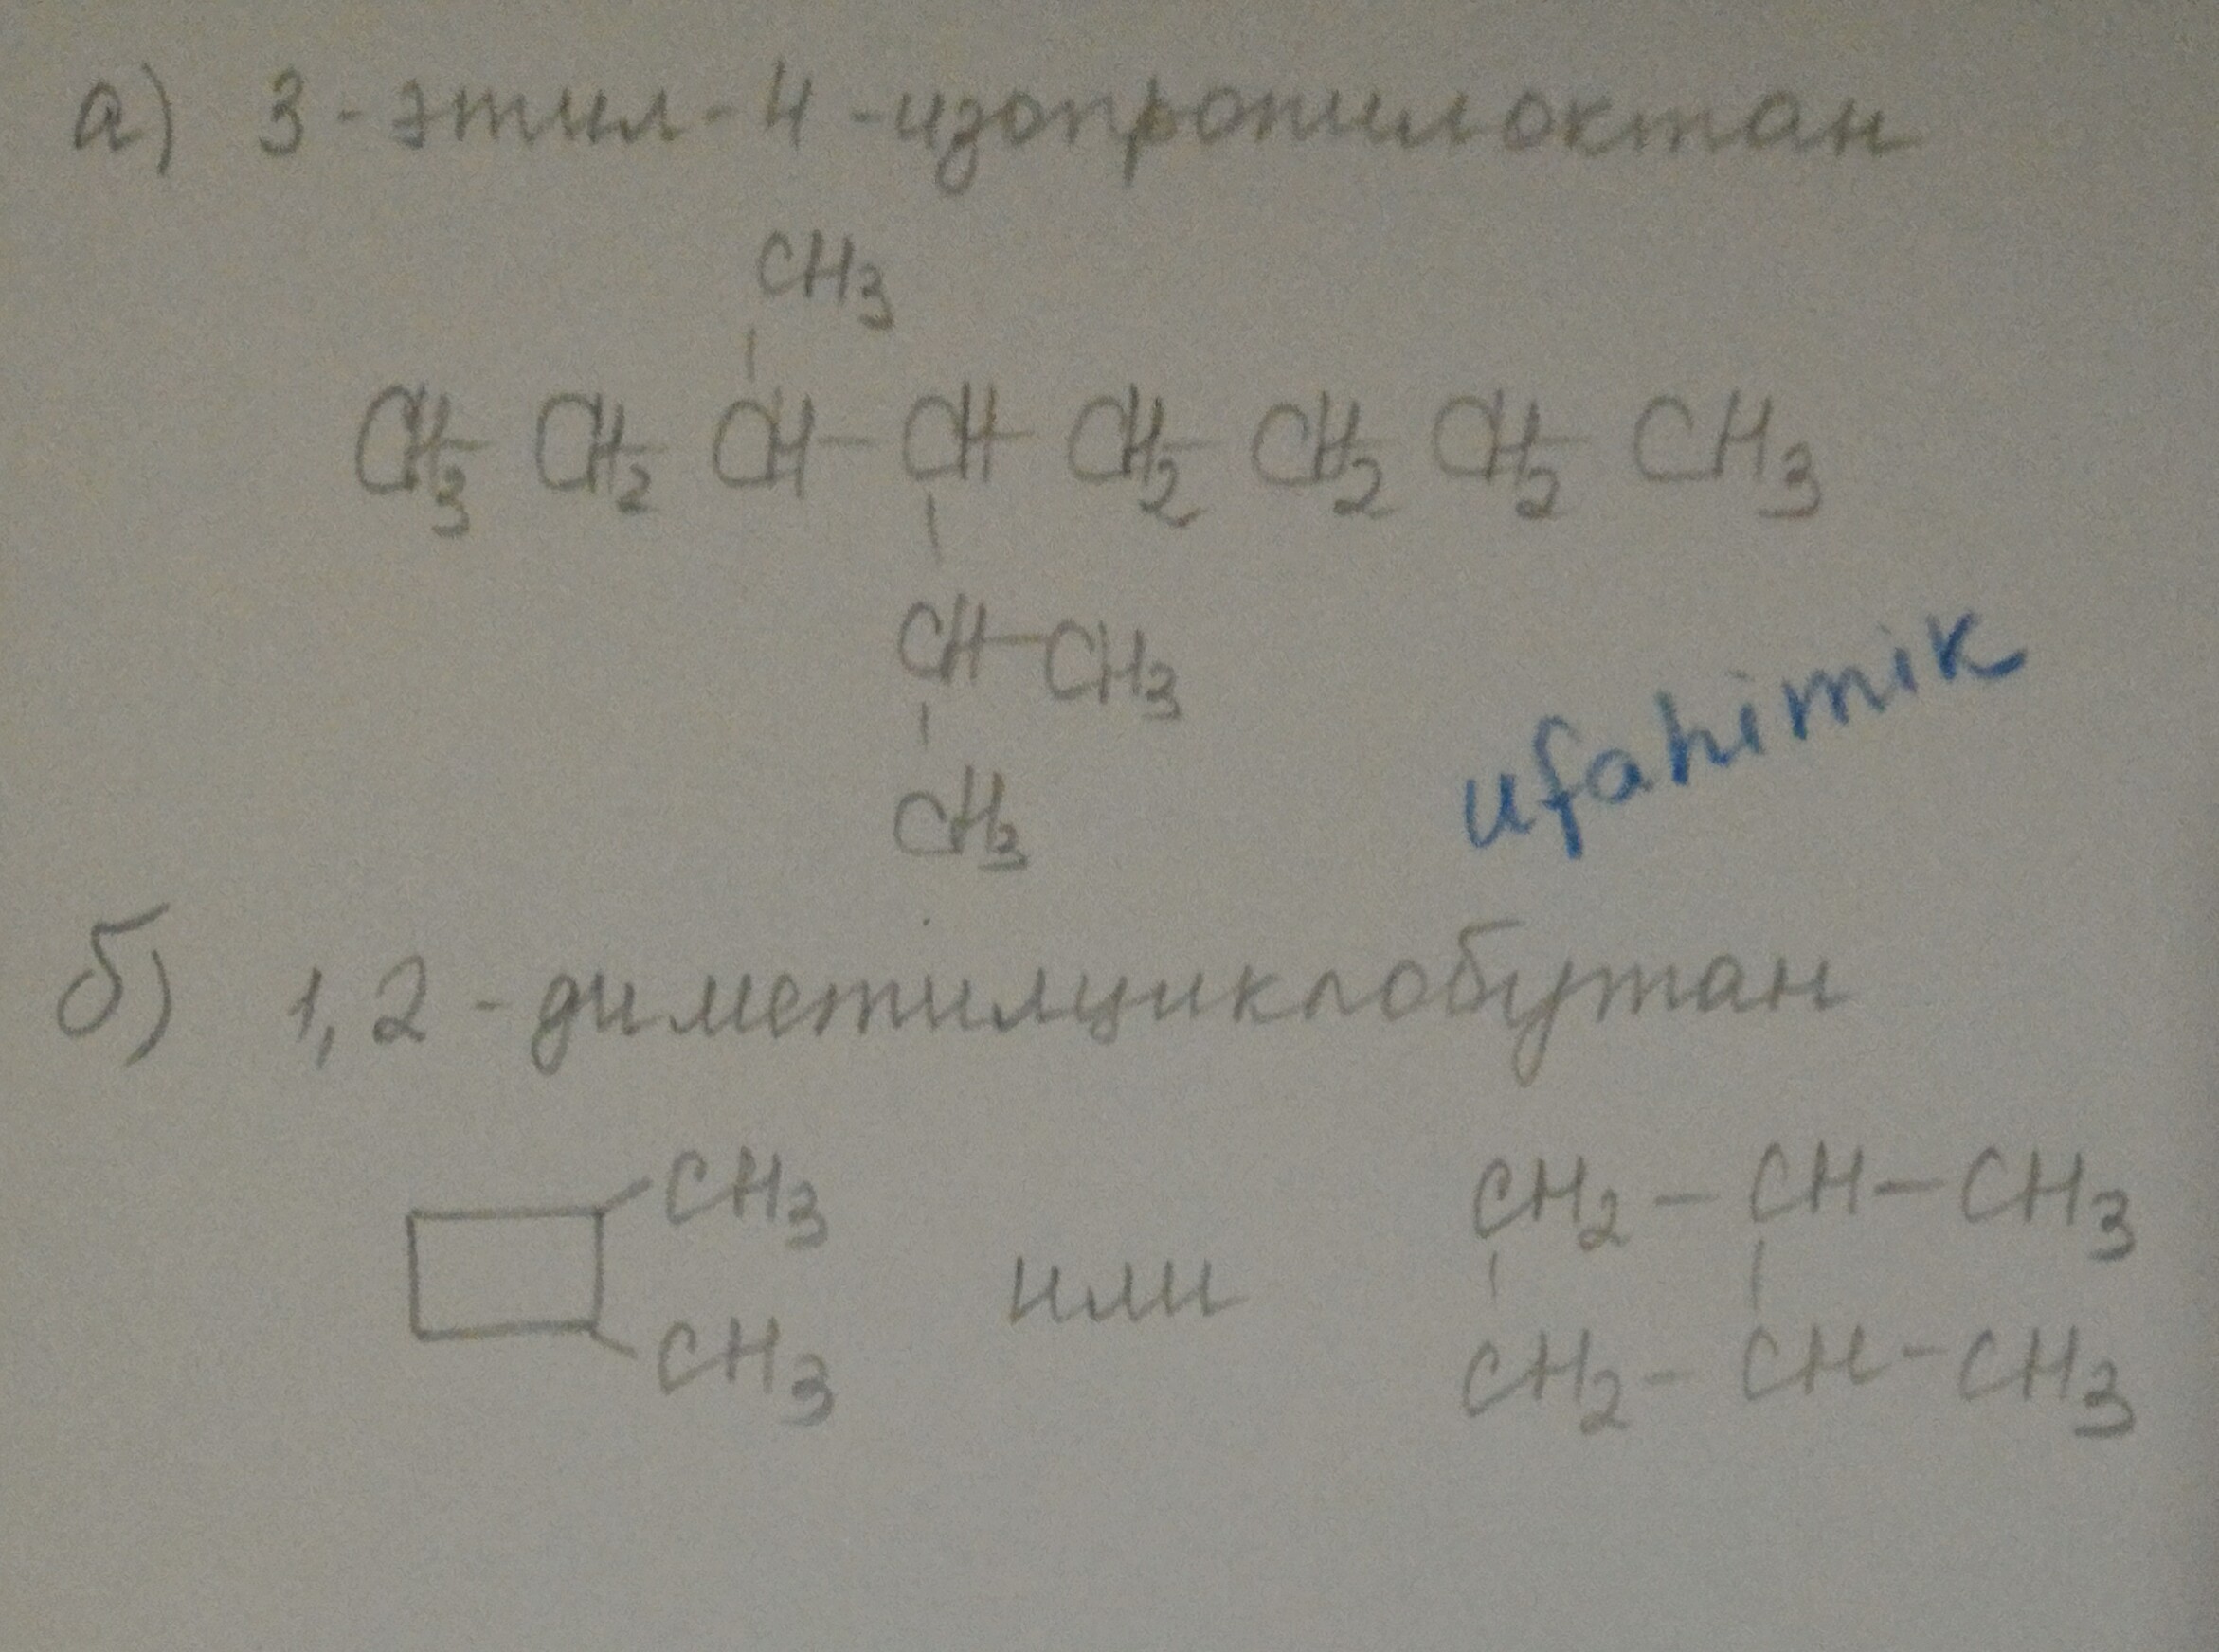 а) 3-этил-4-изопропилоктан
CH3
CH3-CH2-CH-CH-CH2-CH2-CH2-CH3
CH-CH3
CH3
ufahimik
б) 1,2-диметилциклобутан
CH3 CH2-CH-CH3
или
CH3 CH2-CH-CH3